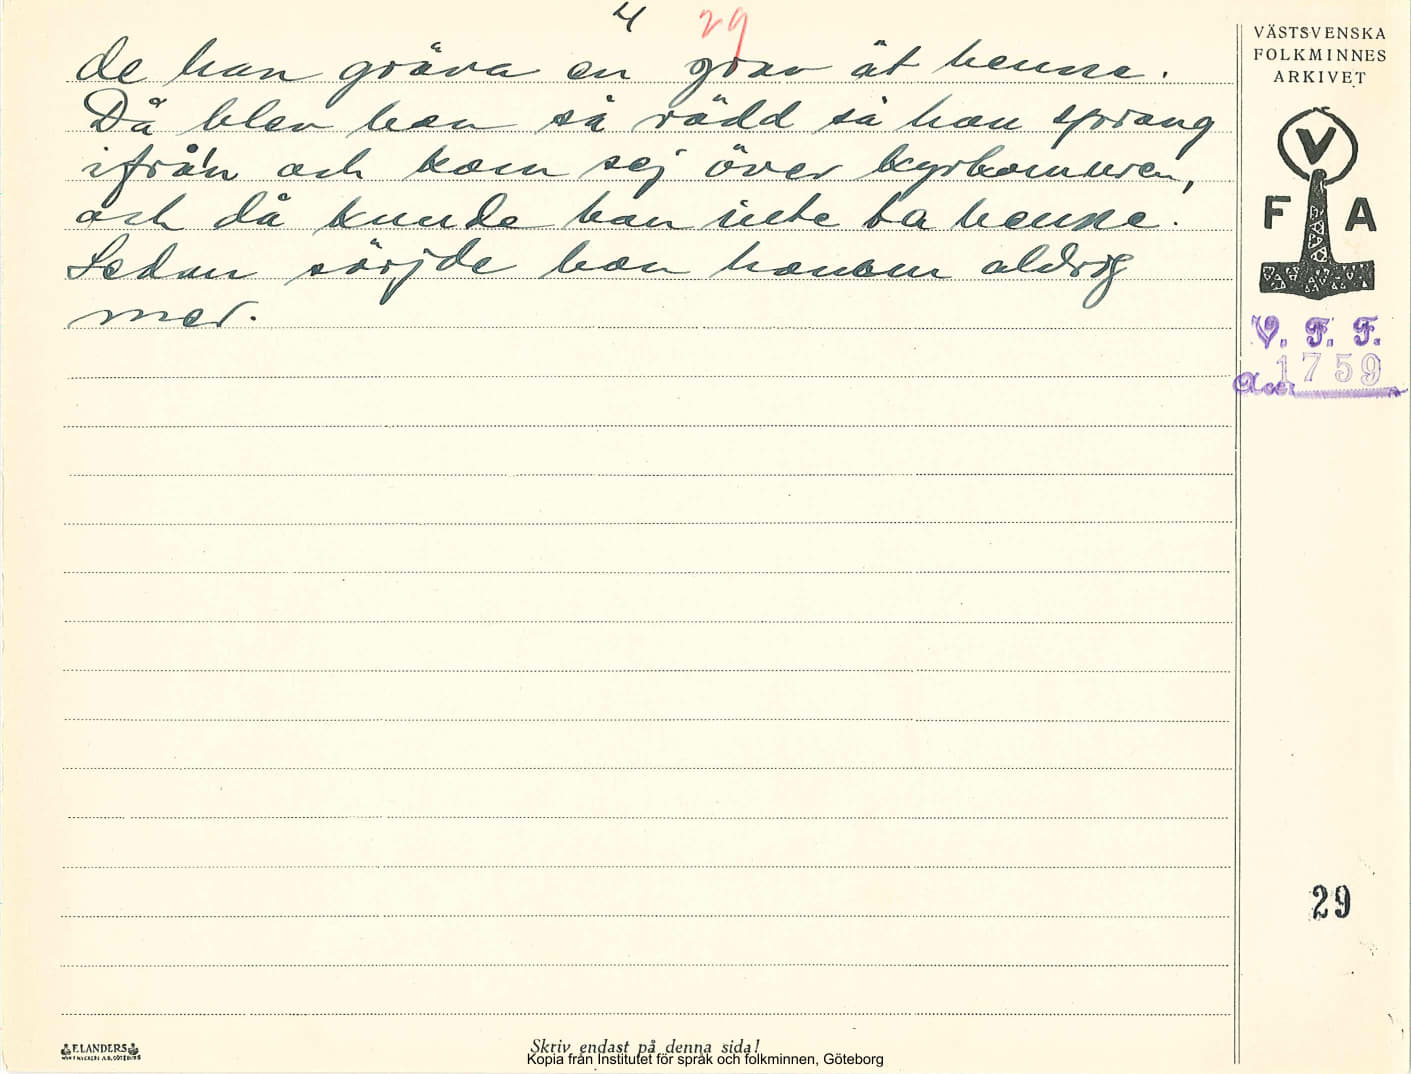 4 29
de han gräva en grav åt henne.
Då blev hon så rädd så hon sprang
ifrån och kom sej över kyrkomuren,
och då kunde han inte ta henne.
Sedan sörjde hon honom aldrig
mer.
VÄSTSVENSKA
FOLKMINNES
ARKIVET
V
F A
V. F. F.
Acc. 1759
29
F. LANDERS
Skriv endast på denna sida!
Kopia från Institutet för språk och folkminnen, Göteborg